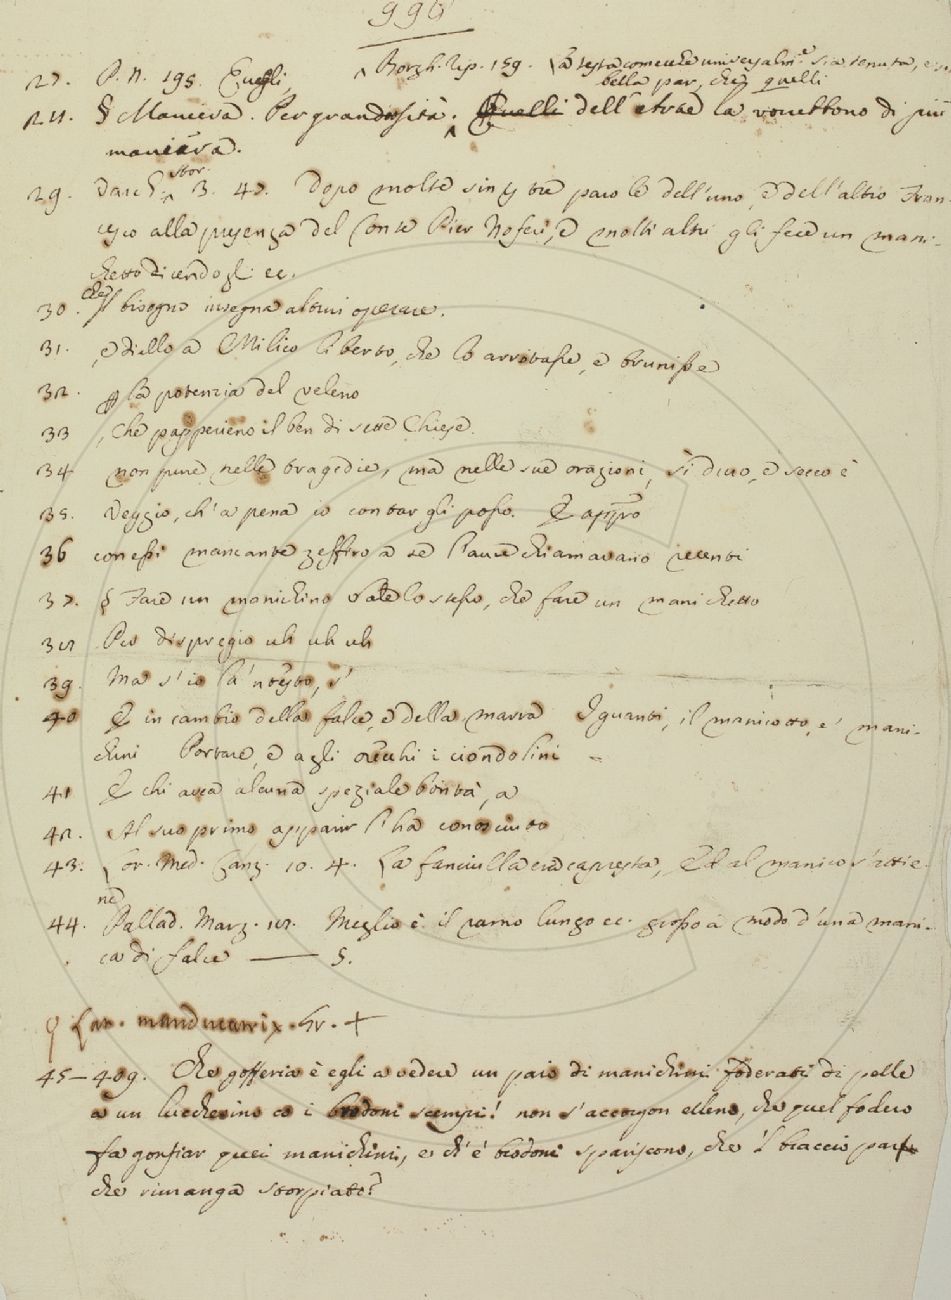 990
27. P. N. 195. Eugli,
^ Borgh. Rip. 159. La testa comeche universalm.e sia tenuta,
bella par, che quelli
28. § Maniera. Per grandosità. ^ Quelli dell'etrae la vorrebbono di più
maniera.
29. Varch. ^ stor. 3. 40. Dopo molte sinistre parole dell'uno, e dell'altro Fran-
cesco alla presenza del Conte Pier Noferi, e molti altri gli fece un mani-
chetto dicendogli ec.
30. che Il bisogno insegna altrui operare.
31. , e diello a Milico liberto, che lo arrotasse, e brunisse
32. la potenzia del veleno
33 , che papperieno il ben di sette Chiese.
34 non pure nelle tragedie, ma nelle sue orazioni, sì duro, e secco è
35. Veggio, ch'a pena io contar gli posso. E appro
36 con essi mancante zeffiro a se l'aure chiamavano recenti
37. § Fare un manichino vale lo stesso, che fare un manichetto
38 Per dispregio uh uh uh
39. Ma s'io la'ntesto, s'
40 E in cambio della falce, e della marra I guanti, il manicotto, e' mani-
chini Portare, e agli orecchi i ciondolini
41 E chi avea alcuna speziale bontà, a
42. Al suo primo apparir l'ha conosciuto
43. Lor. Med. Canz. 10. 4. La fanciulla era capresta, E al manico s'attie-
ne
44. Pallad. Marz. 18. Meglio è il ramo lungo ec. grosso a modo d'una mani-
ca di falce —— 5.
Lat. manducatrix. Gr. +
45–409. Che gofferia è egli a vedere un paio di manichini foderati di pelle
a un lucchesino co i brodoni scempi! non s'accorgon elleno, che quel fodero
fa gonfiar quei manichini, e ch'e' brodoni spariscono, che 'l braccio par
che rimanga storpiato?